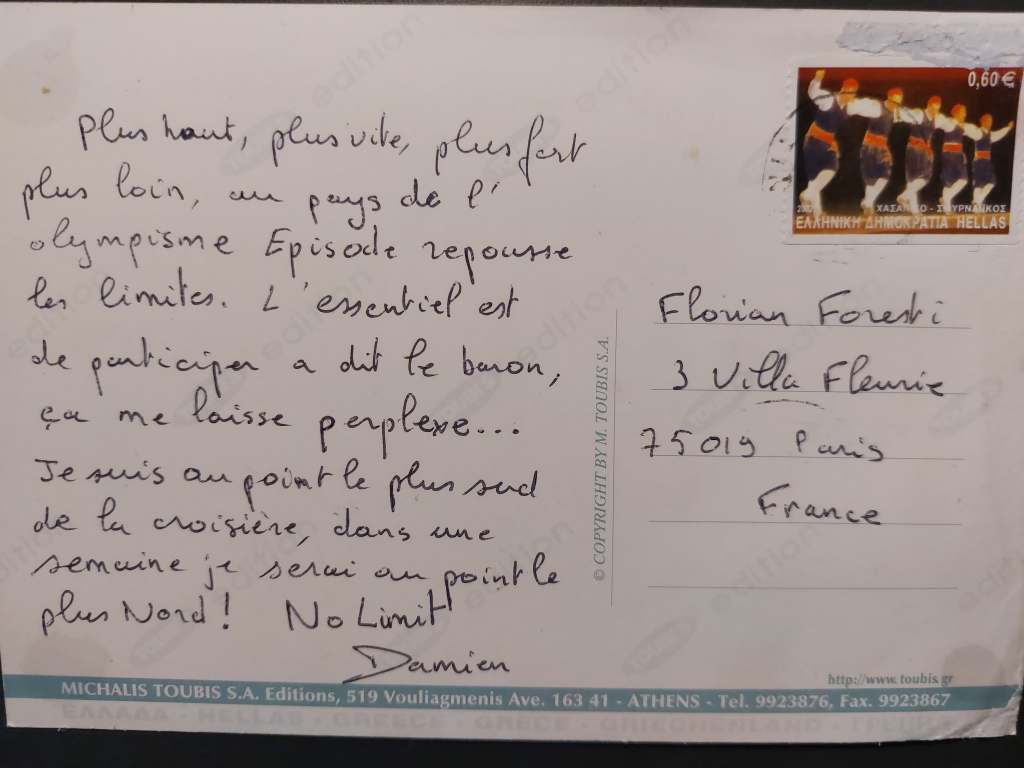 Plus haut, plus vite, plus fort
plus loin, au pays de l'
olympisme Episode repousse
les limites. L'essentiel est
de participer a dit le baron,
ça me laisse perplexe...
Je suis au point le plus sud
de la croisière, dans une
semaine je serai au point le
plus Nord! No Limit
Damien
0,60 €
ΕΛΛΗΝΙΚΗ ΔΗΜΟΚΡΑΤΙΑ HELLAS
Florian Foresti
3 Villa Fleurie
75019 Paris
France
© COPYRIGHT BY M. TOUBIS S.A.
http://www.toubis.gr
MICHALIS TOUBIS S.A. Editions, 519 Vouliagmenis Ave. 163 41 - ATHENS - Tel. 9923876, Fax. 9923867
ΕΛΛΑΔΑ - HELLAS - GREECE - GRECE - GRIECHENLAND